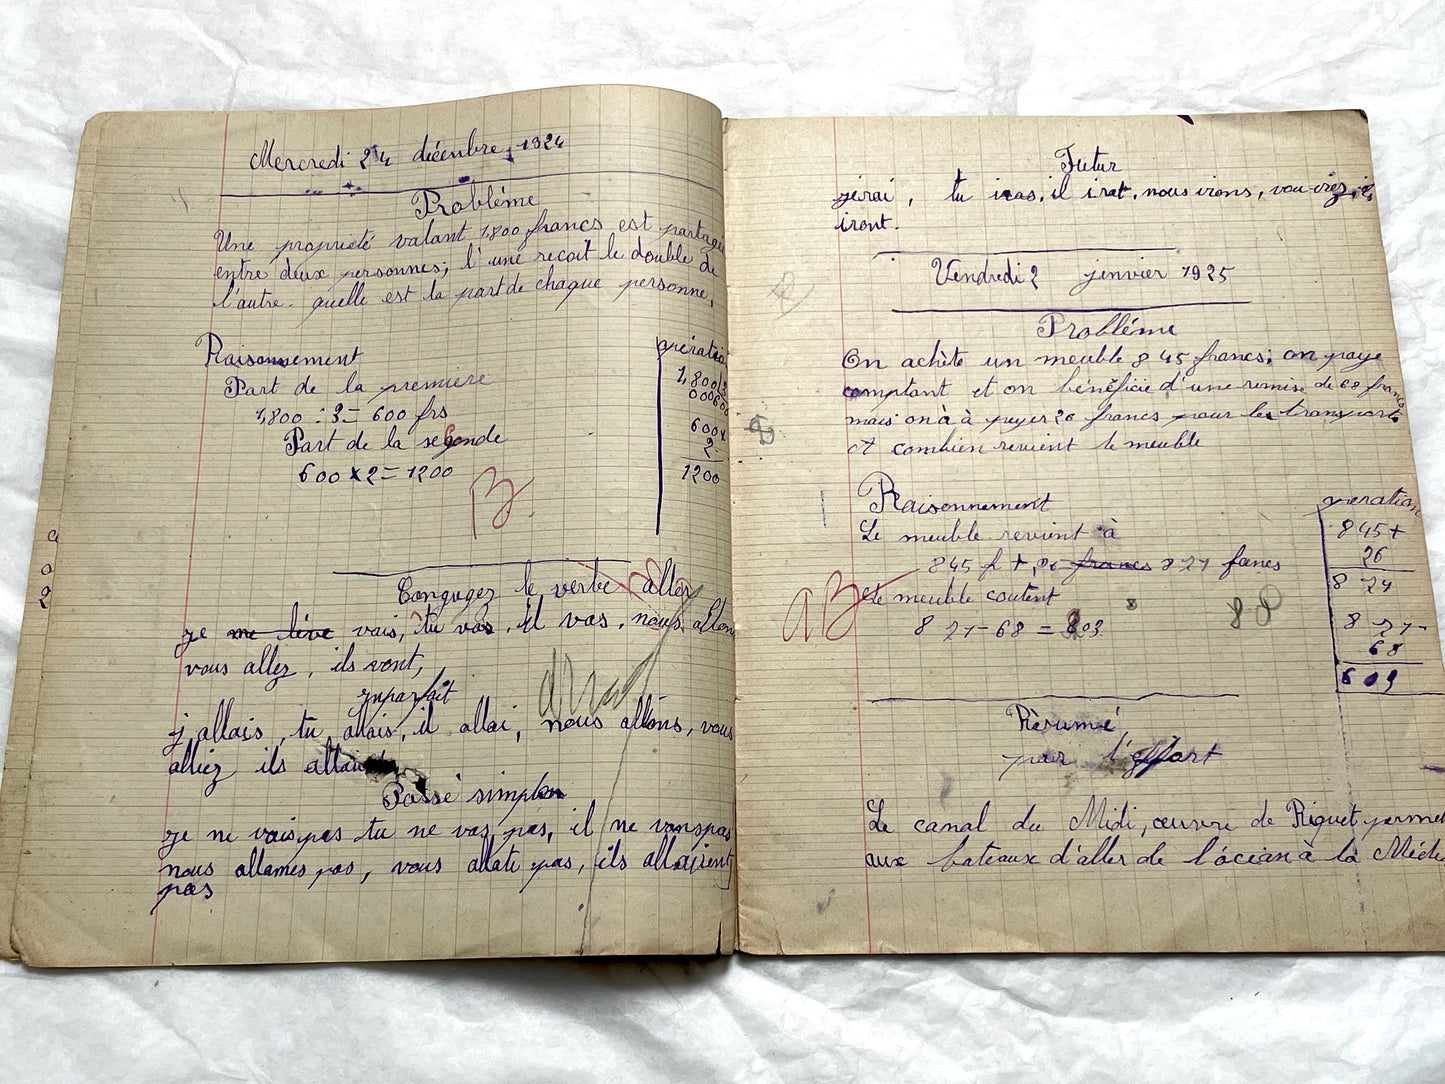 Mercredi 24 décenbre, 1924
Problème
Une propriété valant 1,800 francs est partagé
entre deux personnes; l'une recoit le double de
l'autre. quelle est la part de chaque personne,
Raisonnement
opératio
Part de la première
1,800 : 3 = 600 frs
1,800 3
000600
Part de la segonde
600 x
2
600 x 2 = 1200
1200
B
Congugez le verbe aller
je me lève vais, tu vas, il vas, nous allons
vous allez, ils vont,
inparfait
j'allais, tu allais, il allai, nous allons, vous
alliez ils allai
Passé simple
je ne vais pas tu ne vas pas, il ne vons pas
nous allames pas, vous allate pas, ils allairent
pas
Futur
jirai, tu iras, il irat, nous irons, vou irez, ils
iront.
Vendredi 2 jenvier 1925
Problème
On achète un meuble 845 francs; on paye
comptant et on bénéficie d'une remise de 68 francs
mais on à à payer 26 francs pour les transports
à combien revient le meuble
Raisonnement
opération
Le meuble revient à
845 +
26
845 f + 26 francs 871 francs
871
AB
le meuble coutent
8
88
871 - 68 = 803
871 -
68
603
Rèsumé,
par l'effort
Le canal du Midi, œuvre de Riquet permet
aux bateaux d'aller de l'ócian à la Médi